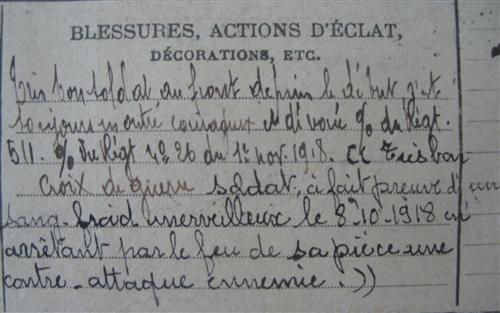 BLESSURES, ACTIONS D'ÉCLAT,
DÉCORATIONS, ETC.
Très bon soldat au front depuis le début s'est
toujours montré courageux et dévoué % du Régt.
511. % du Régt nº 26 du 1er nov. 1918. Très bon
Croix de guerre soldat, à fait preuve d'un
sang-froid merveilleux le 8-10-1918 en
arrêtant par le feu de sa pièce une
contre-attaque ennemie.))